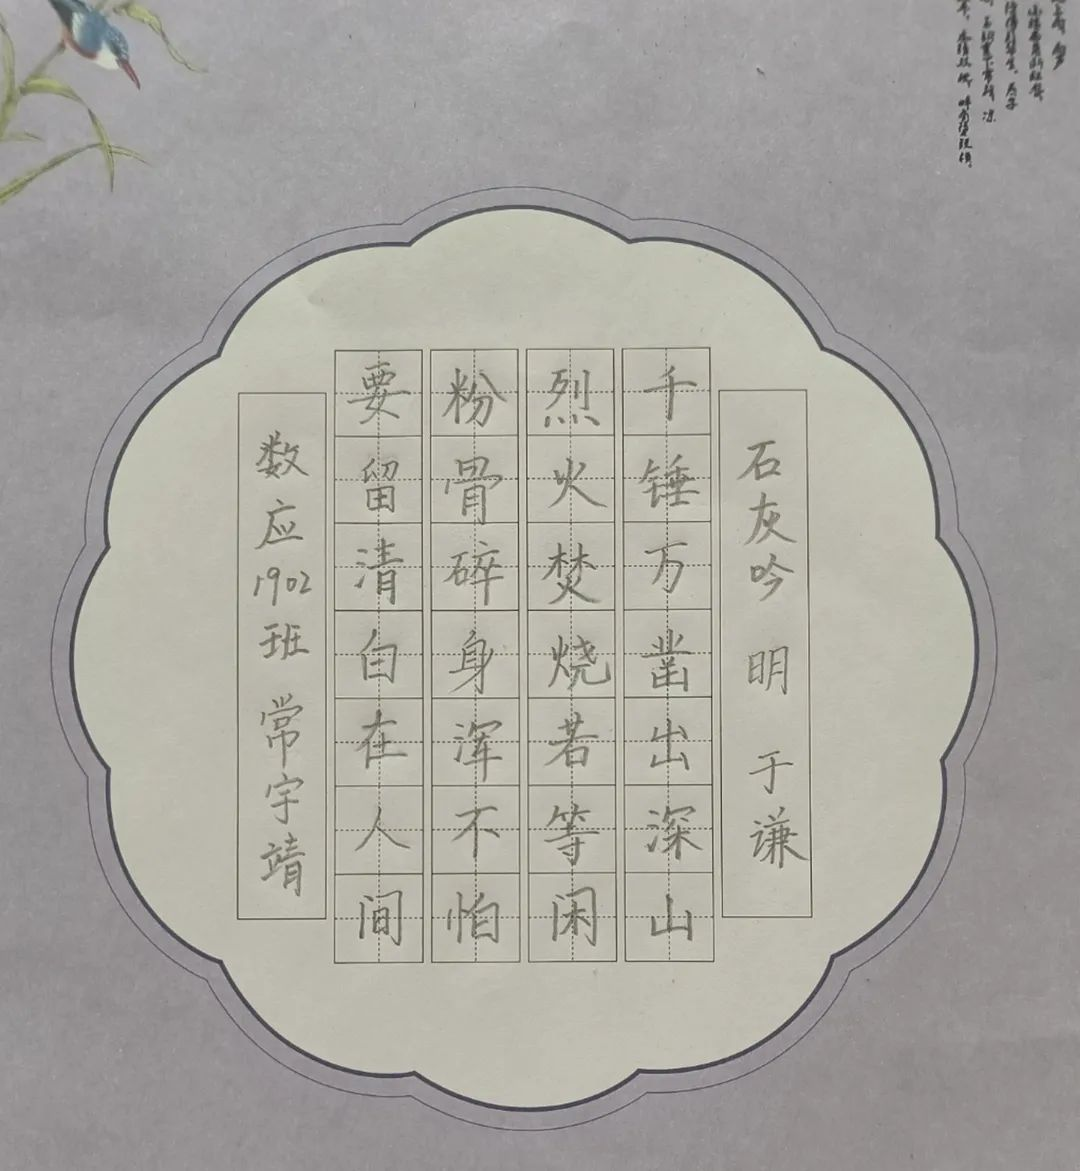 石灰吟 明 于谦
千锤万凿出深山
烈火焚烧若等闲
粉骨碎身浑不怕
要留清白在人间
数应1902班 常宇靖